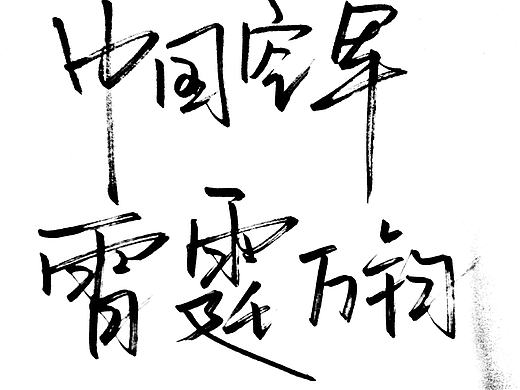 中国空军
霄霆万钧